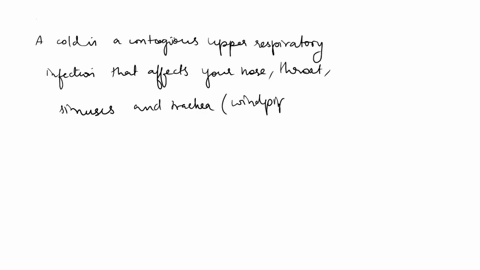 A cold is a contagious upper respiratory
infection that affects your nose, throat,
sinuses and trachea (windpip